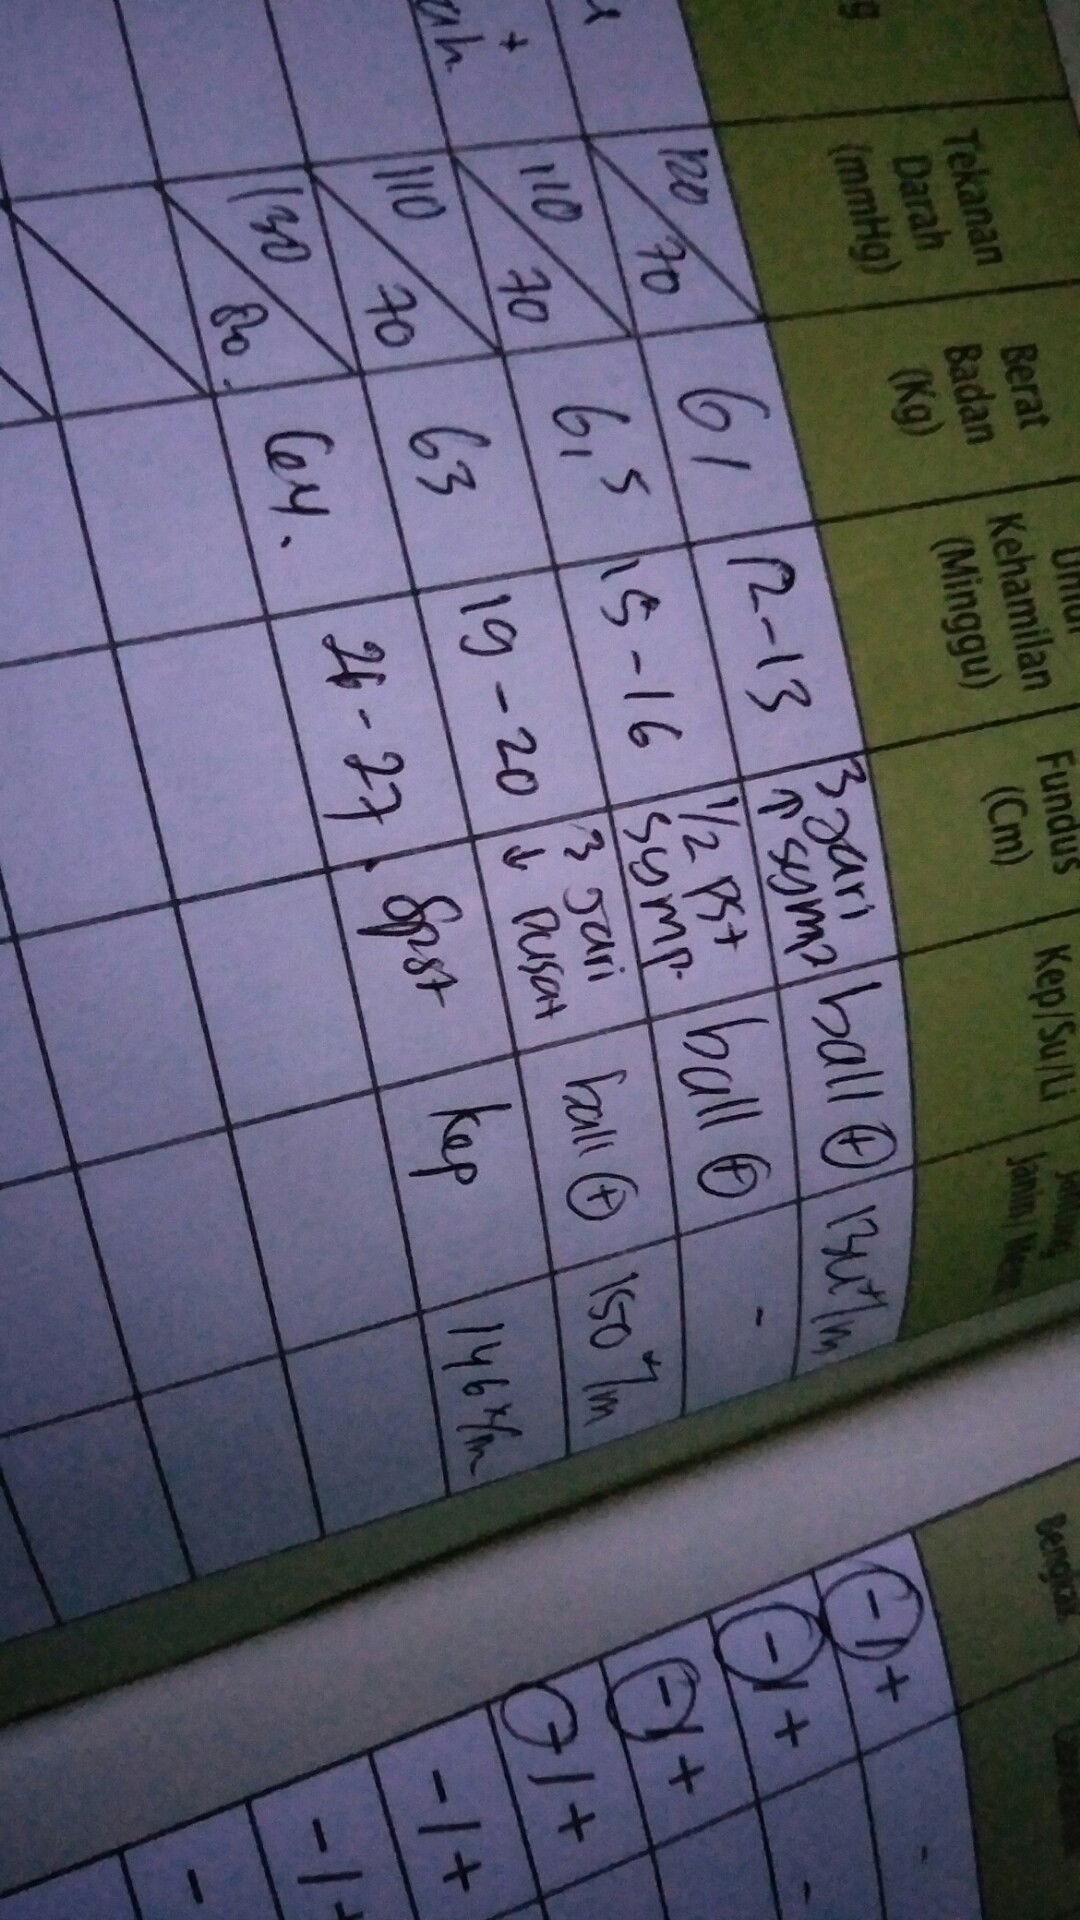 Tekanan Darah (mmHg)
Berat Badan (Kg)
Kehamilan (Minggu)
Fundus (Cm)
Kep/Su/Li
Bengkak
120 / 70 61 12-13 3 Jari ↑ symp ball (+) 134 x/m (-)/+ -
110 / 70 6,5 15-16 1/2 pst symp. ball (+) - (-)/+ -
110 / 70 63 19-20 3 Jari ↓ pusat ball (+) 150 x/m (-)/+
130 / 80. 64. 26-27. Spst Kep 146 x/m (-)/+
-/+
-/+
-